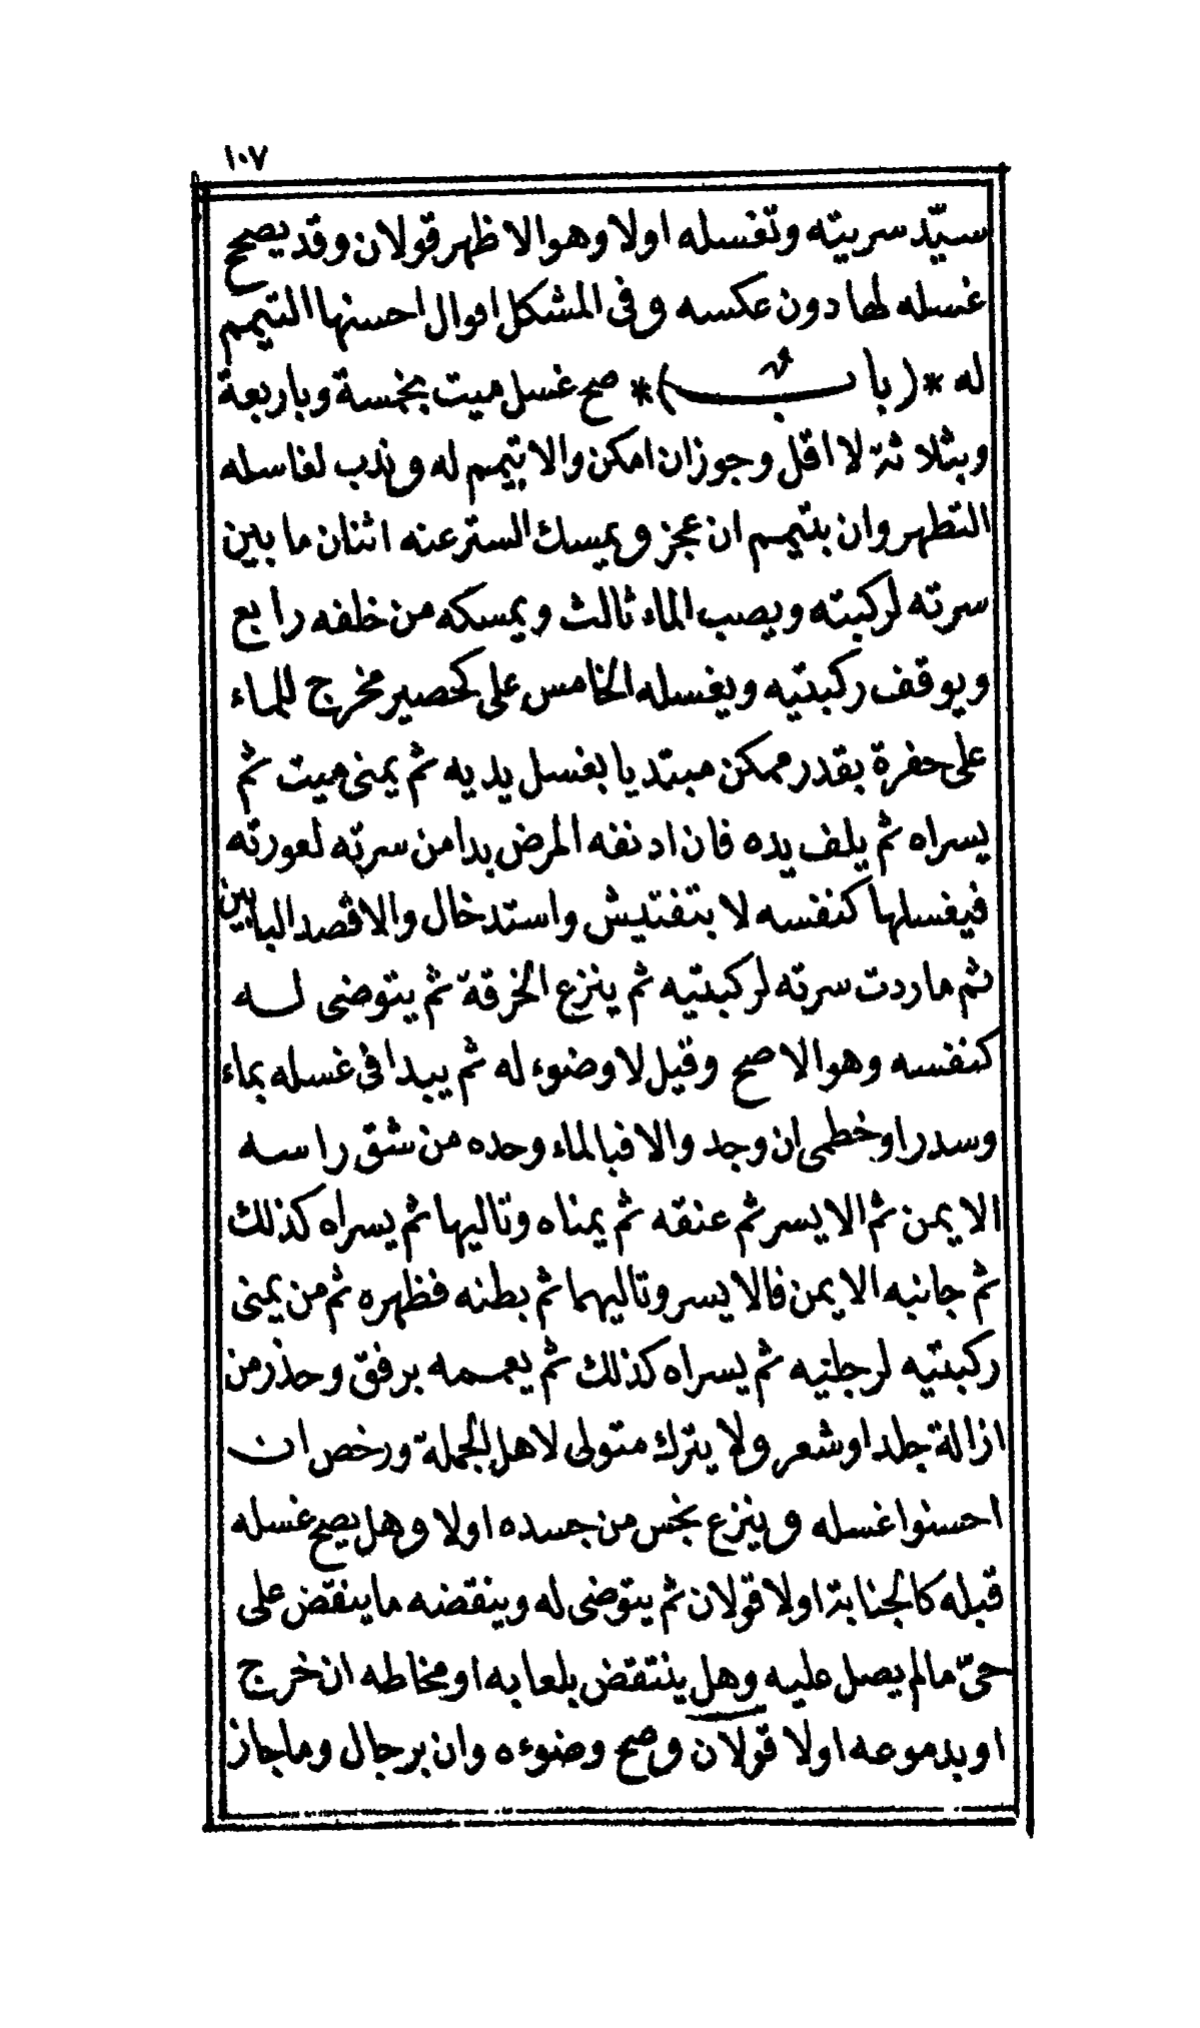 ١٠٧
سيّد سريته وتغسله اولا وهو الاظهر قولان وقد يصح
غسله لها دون عكسه وفى المشكل اقوال احسنها التيمم
له * (باب) * صح غسل ميت بخمسة وباربعة
وبثلاثة لا اقل وجوزان امكن والا تيمم له وندب لغاسله
التطهر وان بتيمم ان عجز ويمسك الستر عنه اثنان ما بين
سرته لركبته ويصب الماء ثالث ويمسكه من خلفه رابع
ويوقف ركبتيه ويغسله الخامس على كحصير مخرج للماء
على حفرة بقدر ممكن مبتديا بغسل يديه ثم يمنى ميت ثم
يسراه ثم يلف يده فان ادنفه المرض بدا من سرته لعورته
فيغسلها كنفسه لا بتفتيش واستدخال والا قصد البابين
ثم ماردت سرته لركبتيه ثم ينزع الخرقة ثم يتوضى له
كنفسه وهو الاصح وقيل لا وضوء له ثم يبدا فى غسله بماء
وسدر او خطمى ان وجد والا فبالماء وحده من شق راسه
الايمن ثم الايسر ثم عنقه ثم يمناه وتاليها ثم يسراه كذلك
ثم جانبه الايمن فالايسر وتاليهما ثم بطنه فظهره ثم من يمنى
ركبتيه لرجليه ثم يسراه كذلك ثم يعممه برفق وحذر من
ازالة جلد او شعر ولا يترك متولى لاهل الجملة ورخص ان
احسنوا غسله وينزع نجس من جسده اولا وهل يصح غسله
قبله كالجنابة اولا قولان ثم يتوضى له وينقضه ما ينقض على
حىّ مالم يصل عليه وهل ينتقض بلعابه او مخاطه ان خرج
او بدموعه اولا قولان وصح وضوءه وان برجال وما جاز